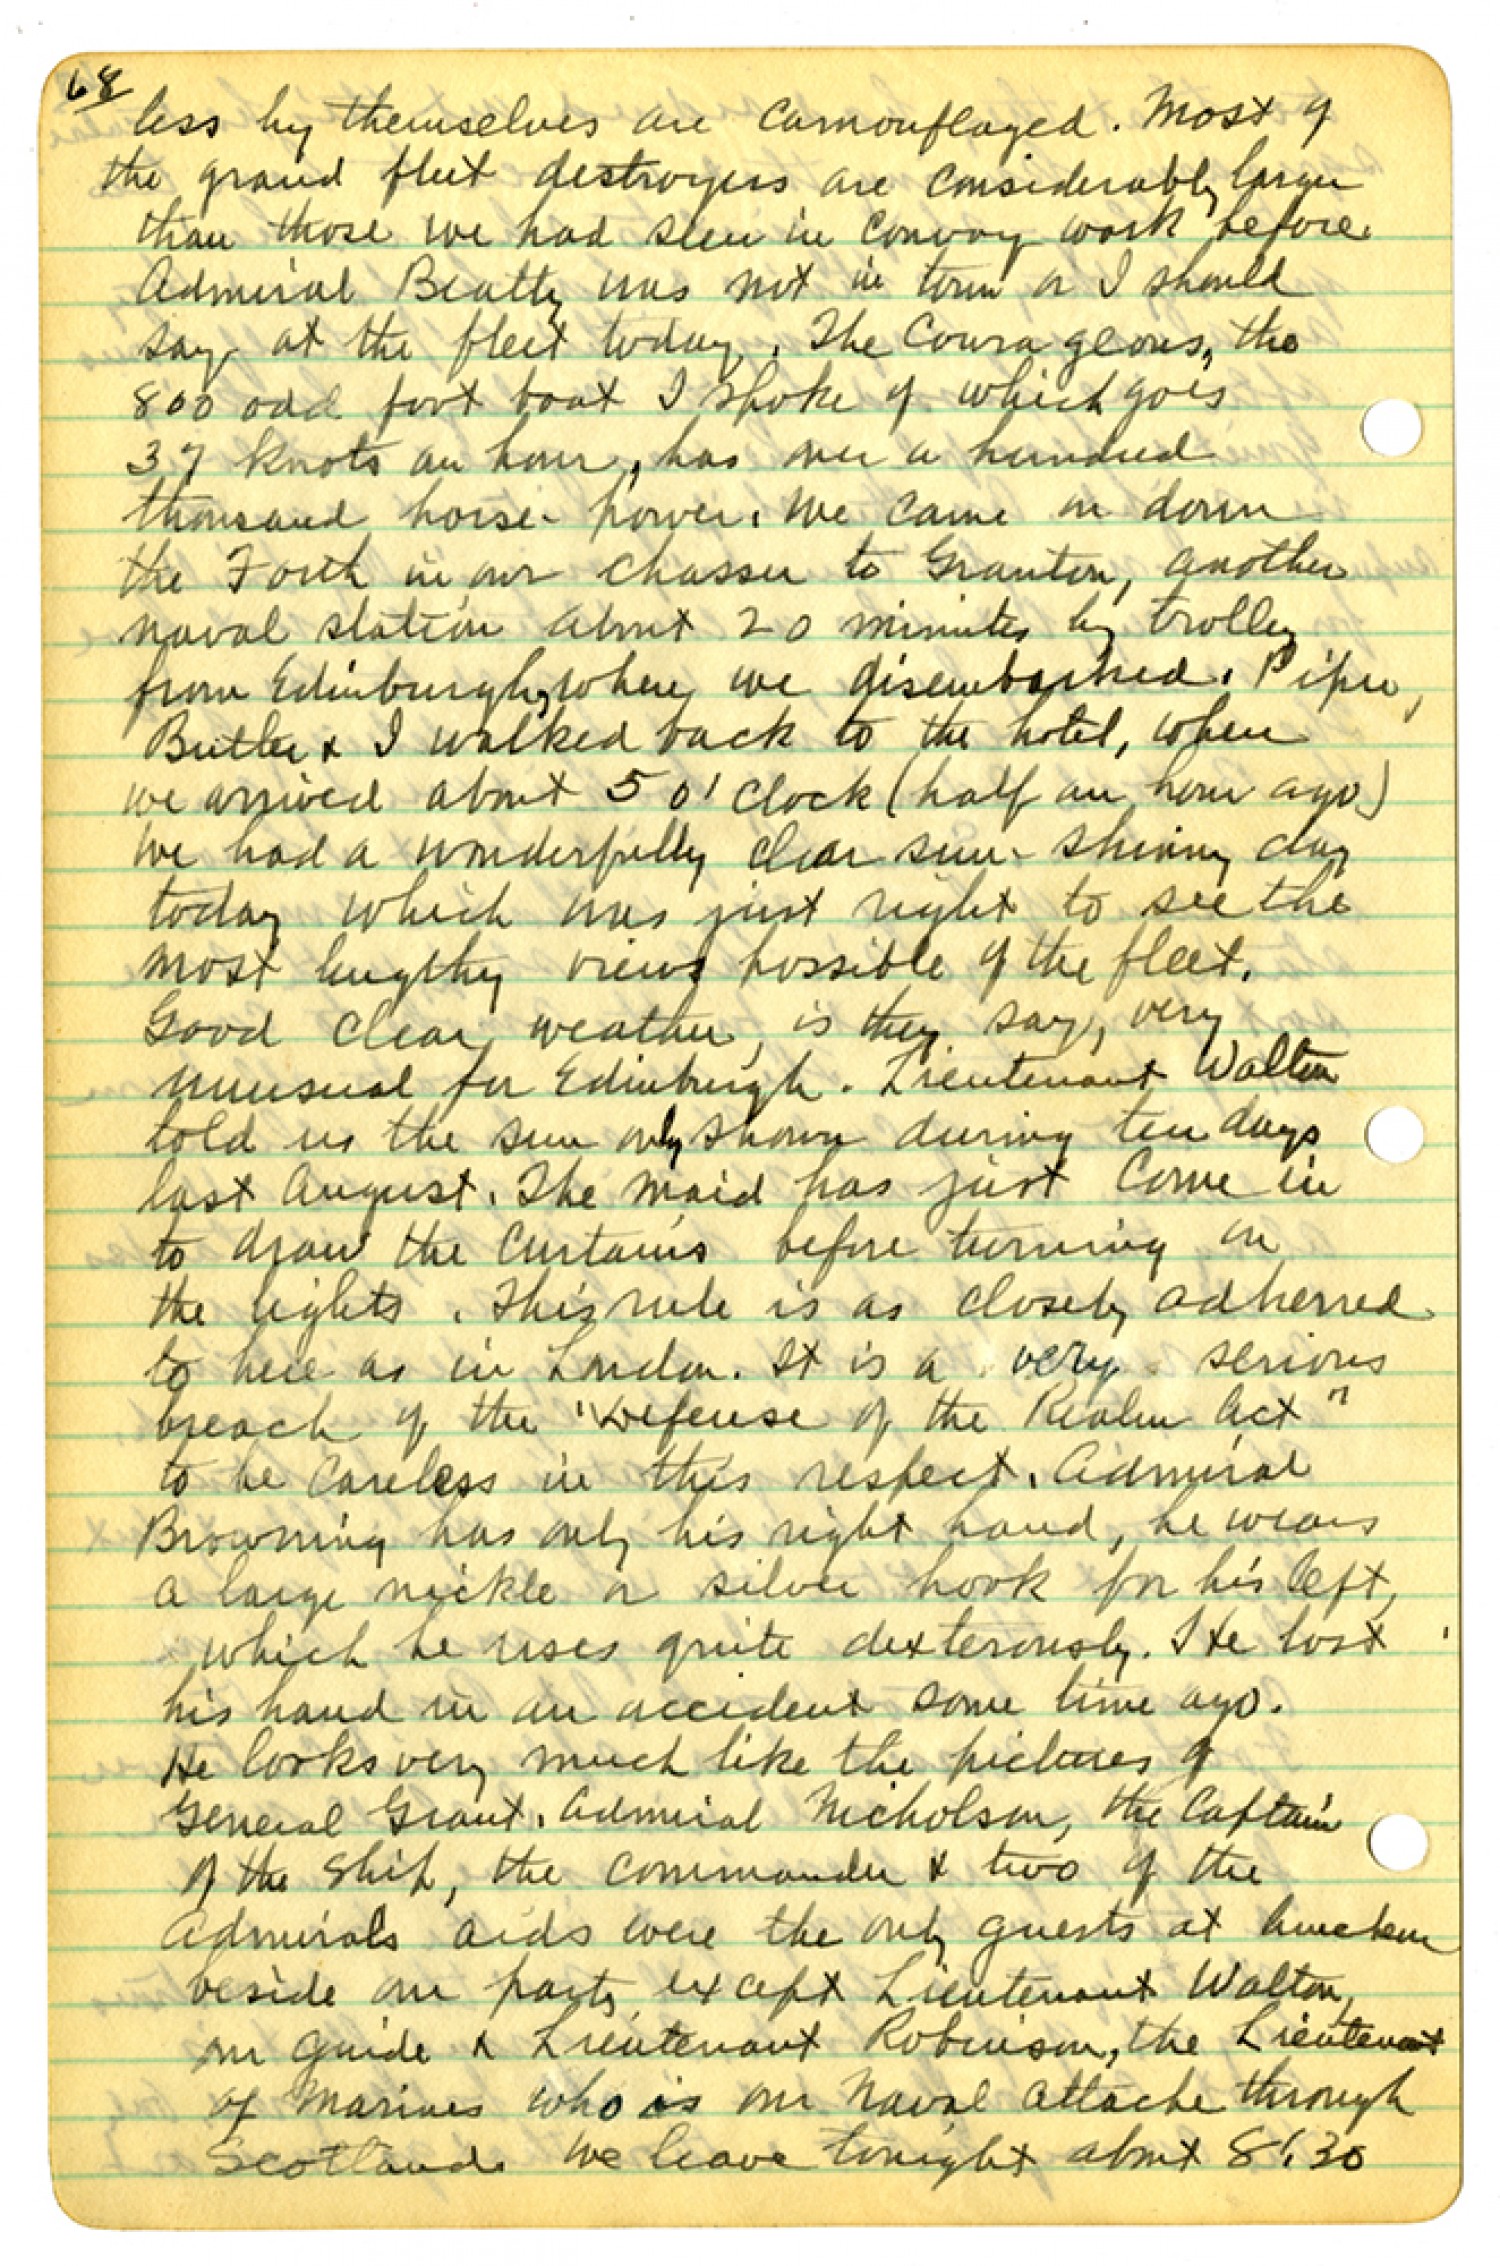 68
less by themselves are camouflaged. Most of
the grand fleet destroyers are considerably larger
than those we had seen in convoy work before.
Admiral Beatty was not in town or I should
say at the fleet today. The Courageous, the
800 odd foot boat I spoke of which goes
37 knots an hour, has over a hundred
thousand horse-power. We came on down
the Forth in our chasser to Granton, another
naval station about 20 minutes by trolley
from Edinburgh, where we disembarked. Piper,
Butler & I walked back to the hotel, when
we arrived about 5 o'clock (half an hour ago)
We had a wonderfully clear sun-shining day
today which was just right to see the
most lengthy views possible of the fleet.
Good clear weather, is they say, very
unusual for Edinburgh. Lieutenant Walton
told us the sun only shown during ten days
last August. The maid has just come in
to draw the curtains before turning on
the lights. This rule is as closely adherred
to here as in London. It is a very serious
breach of the "Defense of the Realm Act"
to be careless in this respect. Admiral
Browning has only his right hand, he wears
a large nickle or silver hook for his left,
which he uses quite dexterously. He lost
his hand in an accident some time ago.
He looks very much like the pictures of
General Grant. Admiral Nicholson, the Captain
of the ship, the commander & two of the
Admirals aids were the only guests at luncheon
beside our party except Lieutenant Walton,
our guide & Lieutenant Robinson, the Lieutenant
of Marines who is our Naval attache through
Scotland. We leave tonight about 8:30